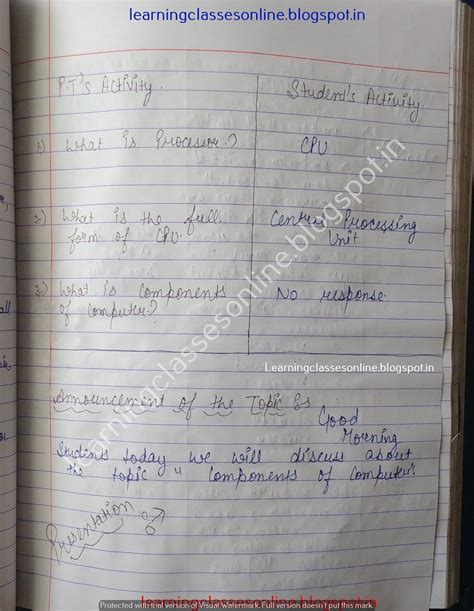 learningclassesonline.blogspot.in
P.T's Activity
Student's Activity
1) What is Processor?
CPU
2.) What is the full
form of CPU.
Central Processing
Unit
3.) What is components
of computer?
No response
learningclassesonline.blogspot.in
Learningclassesonline.blogspot.in
Announcement of the Topic
Good
Morning
Students today we will discuss about
the topic " Components of Computer".
Presentation
Protected with trial version of Visual Watermark. Full version doesn't put this mark.
learningclassesonline.blogspot.in